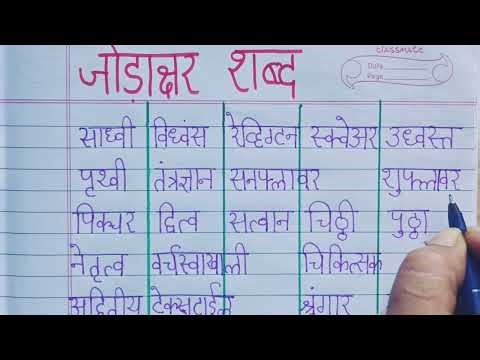 classmate
Date
Page
जोडाक्षर शब्द
साध्वी विध्वंस रेव्हिग्टन स्क्वेअर उध्वस्त
पृथ्वी तंत्रज्ञान सनफ्लावर शुफ्लावर
पिक्चर द्वित्व सत्वान चिठ्ठी पुठ्ठा
नेतृत्व वर्चस्वाखाली चिकित्सक
अद्वितीय टेक्सटाईल श्रृंगार